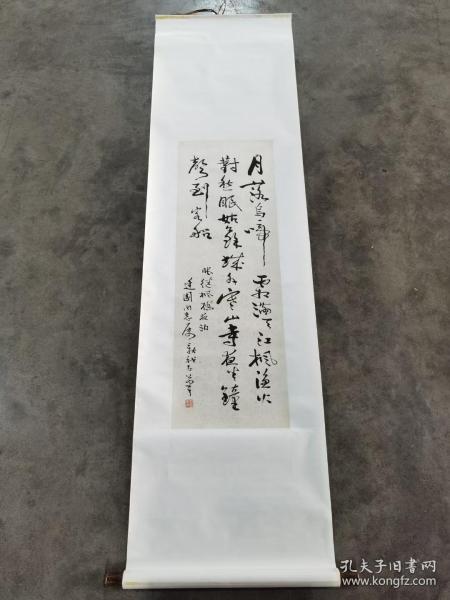 月落乌啼霜满天江枫渔火
對愁眠姑蘇城外寒山寺夜半鐘
聲到客船
張继枫橋夜泊
建国同志属
孔夫子旧书网
www.kongfz.com